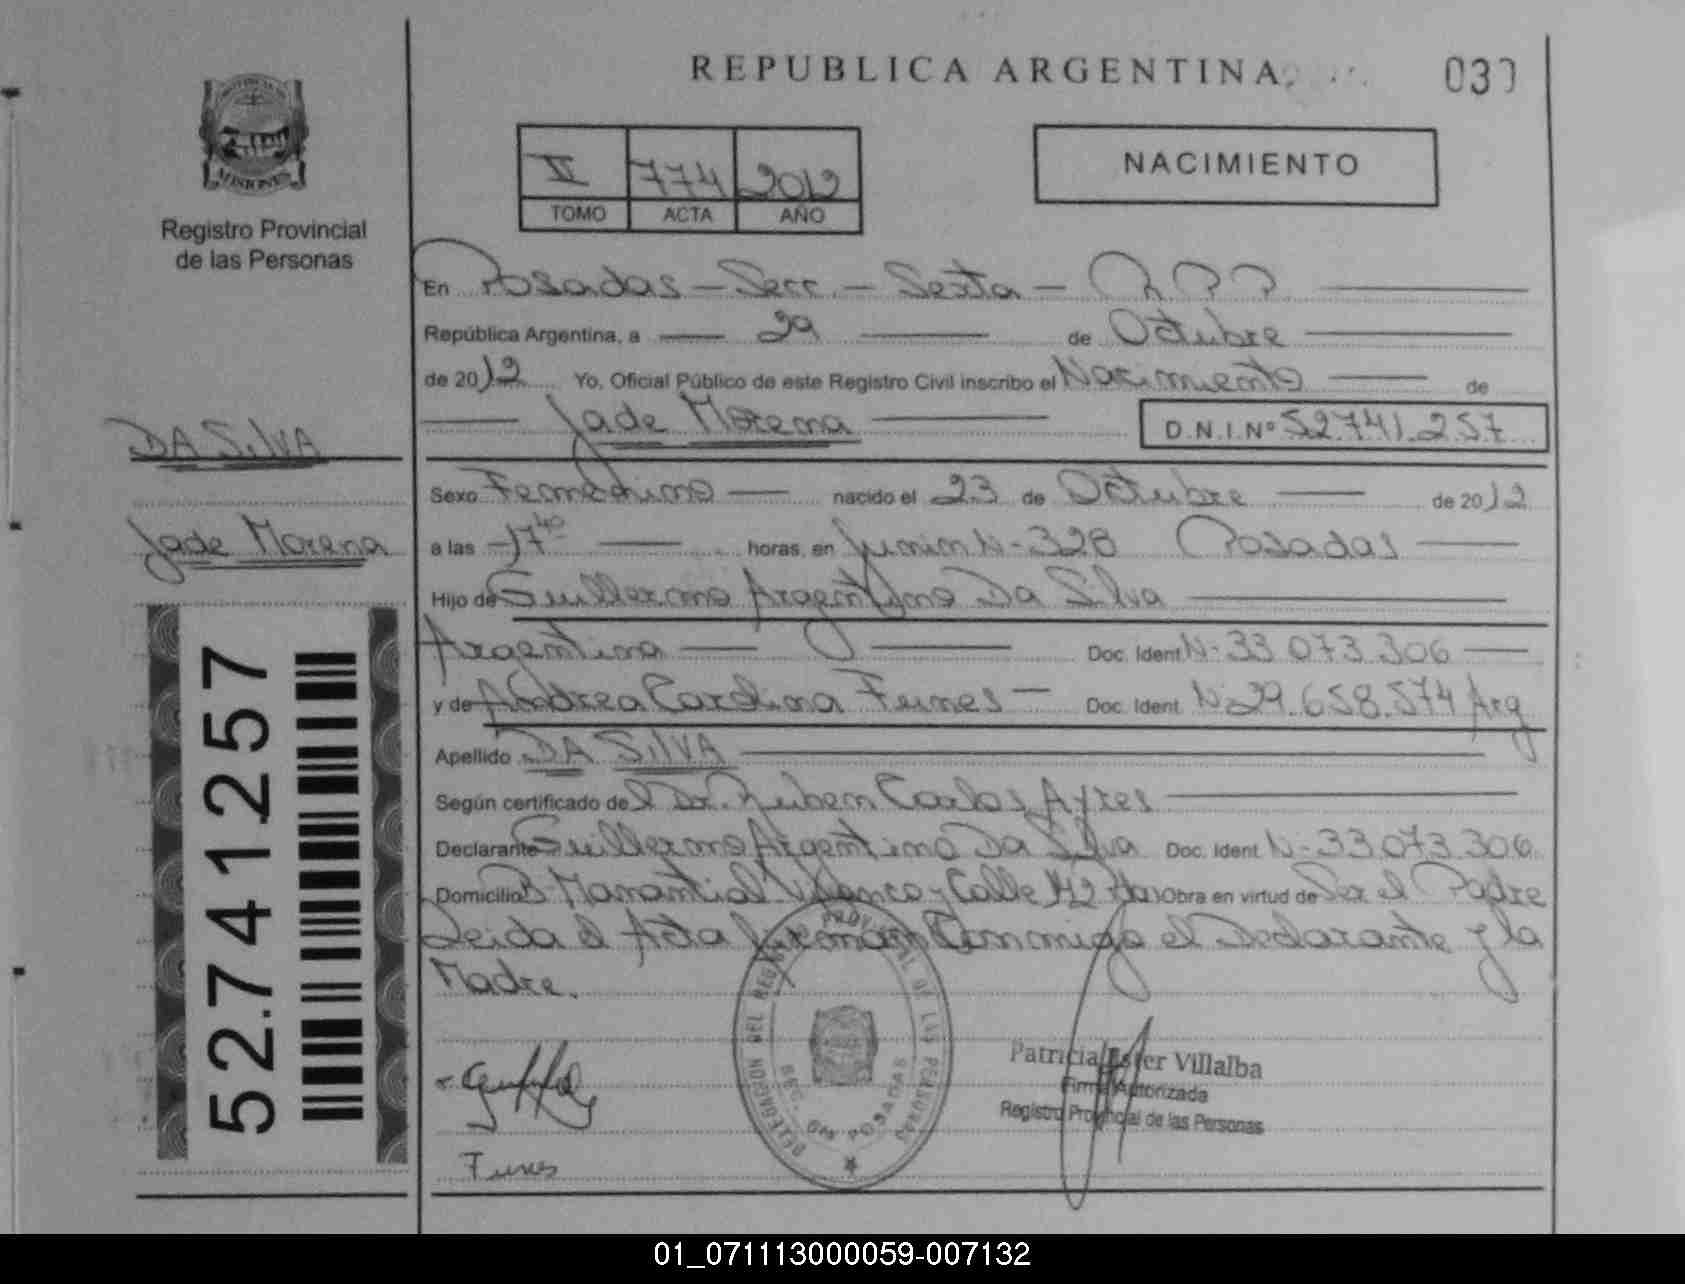 REPUBLICA ARGENTINA
030
PROVINCIA DE MISIONES
Registro Provincial
de las Personas
V 774 2012
TOMO ACTA AÑO
NACIMIENTO
En Posadas - Secc. - Sexta - R P P
República Argentina, a 29 de Octubre
de 2012 Yo, Oficial Público de este Registro Civil inscribo el Nacimiento de
Jade Morena D.N.I.Nº 52.741.257
DA SILVA
Jade Morena
Sexo Femenino nacido el 23 de Octubre de 2012
a las 17 40 horas, en Junin N- 328 Posadas
Hijo de Guillermo Argentino Da Silva
Argentina Doc. Ident N- 33.073.306
y de Andrea Carolina Funes Doc. Ident. N- 29.658.574 Arg
Apellido DA SILVA
Según certificado del Dr. Ruben Carlos Ayres
Declarante Guillermo Argentino Da Silva Doc. Ident N- 33.073.306
Domicilio B- Manantial Blanco y Calle 112 Obra en virtud de Ser el Padre
Leida el Acta Firman Conmigo el Declarante y la
Madre.
52.741.257
DELEGACION DEL REGISTRO PROVINCIAL DE LAS PERSONAS
SEC. 6ta POSADAS
Patricia Ester Villalba
Firma Autorizada
Registro Provincial de las Personas
Funes
01_071113000059-007132